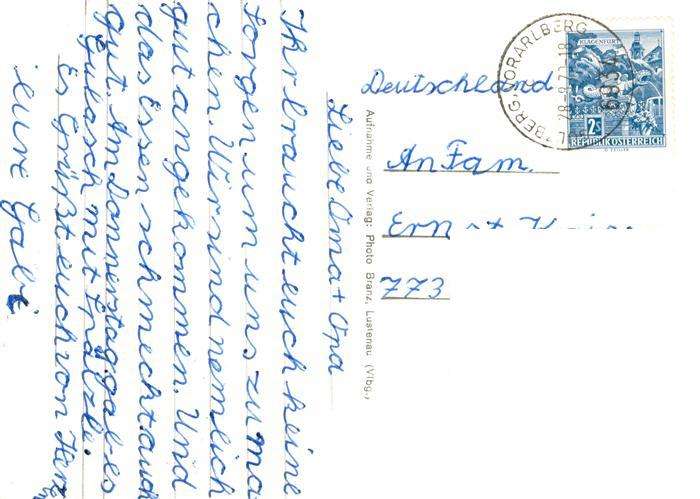 Liebe Oma + Opa
Ihr braucht euch keine
Sorgen um uns zu ma
chen. Wir sind nemlich
gut angekommen. Und
das Essen schmecht auch
gut. Am Donnerstag gab es
Gulasch mit Spätzle.
Es Grüßt euch von Herz
eure Gabi
Aufnahme und Verlag: Photo Branz, Lustenau (Vlbg.,
Deutschland
An Fam.
Ernst
773
KLAGENFURT
2S
REPUBLIK ÖSTERREICH
VORARLBERG
28.8.72-18
6834